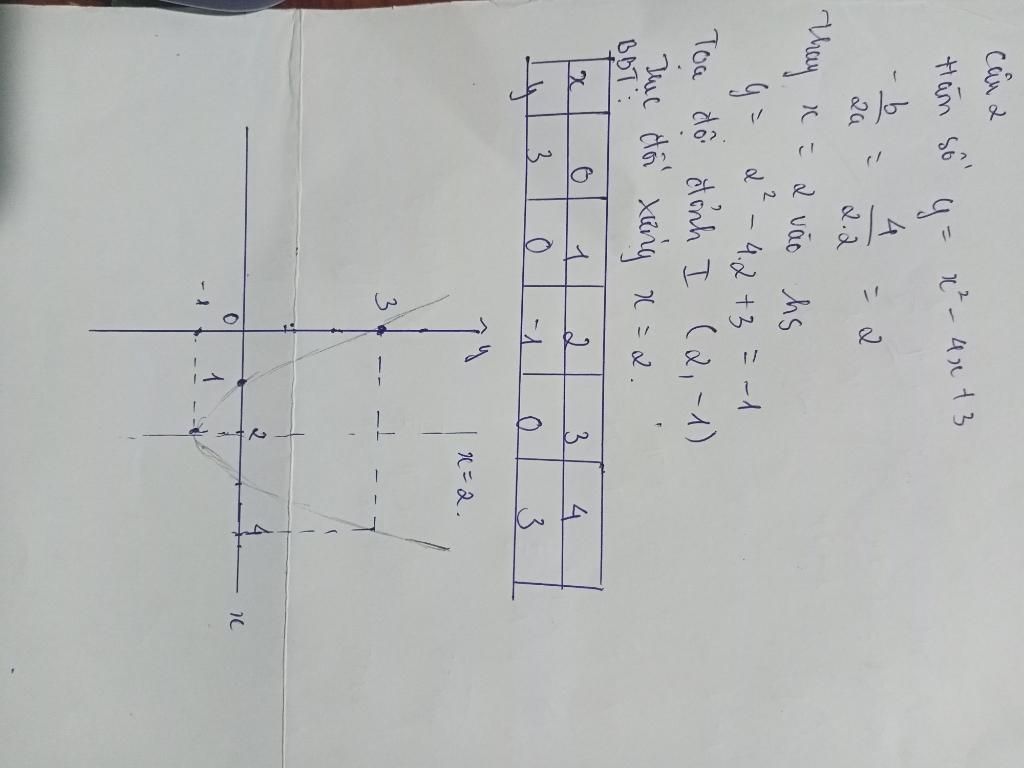 Câu 2
Hàm số y = x² - 4x + 3
-b/2a = 4/2.2 = 2
Thay x = 2 vào hs
y = 2² - 4.2 + 3 = -1
Tọa độ đỉnh I (2, -1)
Trục đối xứng x = 2.
BBT:
x 0 1 2 3 4
y 3 0 -1 0 3
y
x = 2.
3
0 1 2 4 x
-1